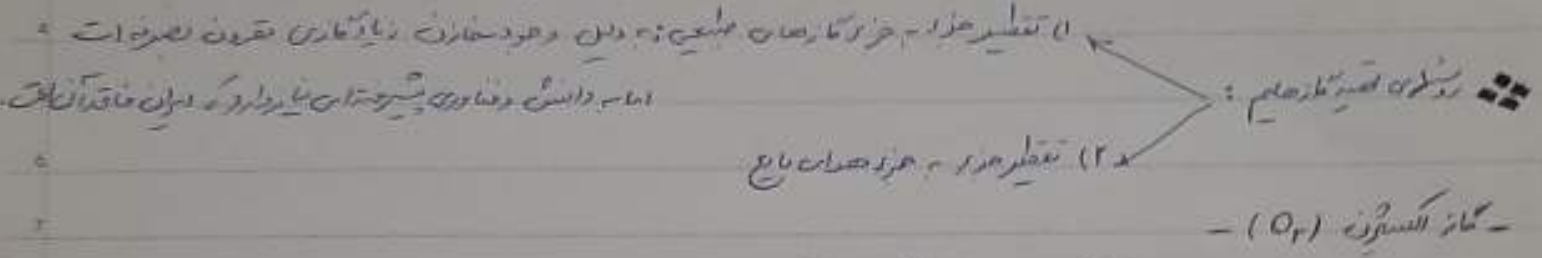 روشهای تهیه گاز هلیم :
۱) تقطیر جزء به جزء گازهای طبیعی : به دلیل وجود مخازن زیاد گازی مقرون بصرفه است
اما به دانش و فناوری پیشرفته‌ای نیاز دارد که ایران فاقد آن است.
۲) تقطیر جزء به جزء هوای مایع
- گاز اکسیژن (O₂) -